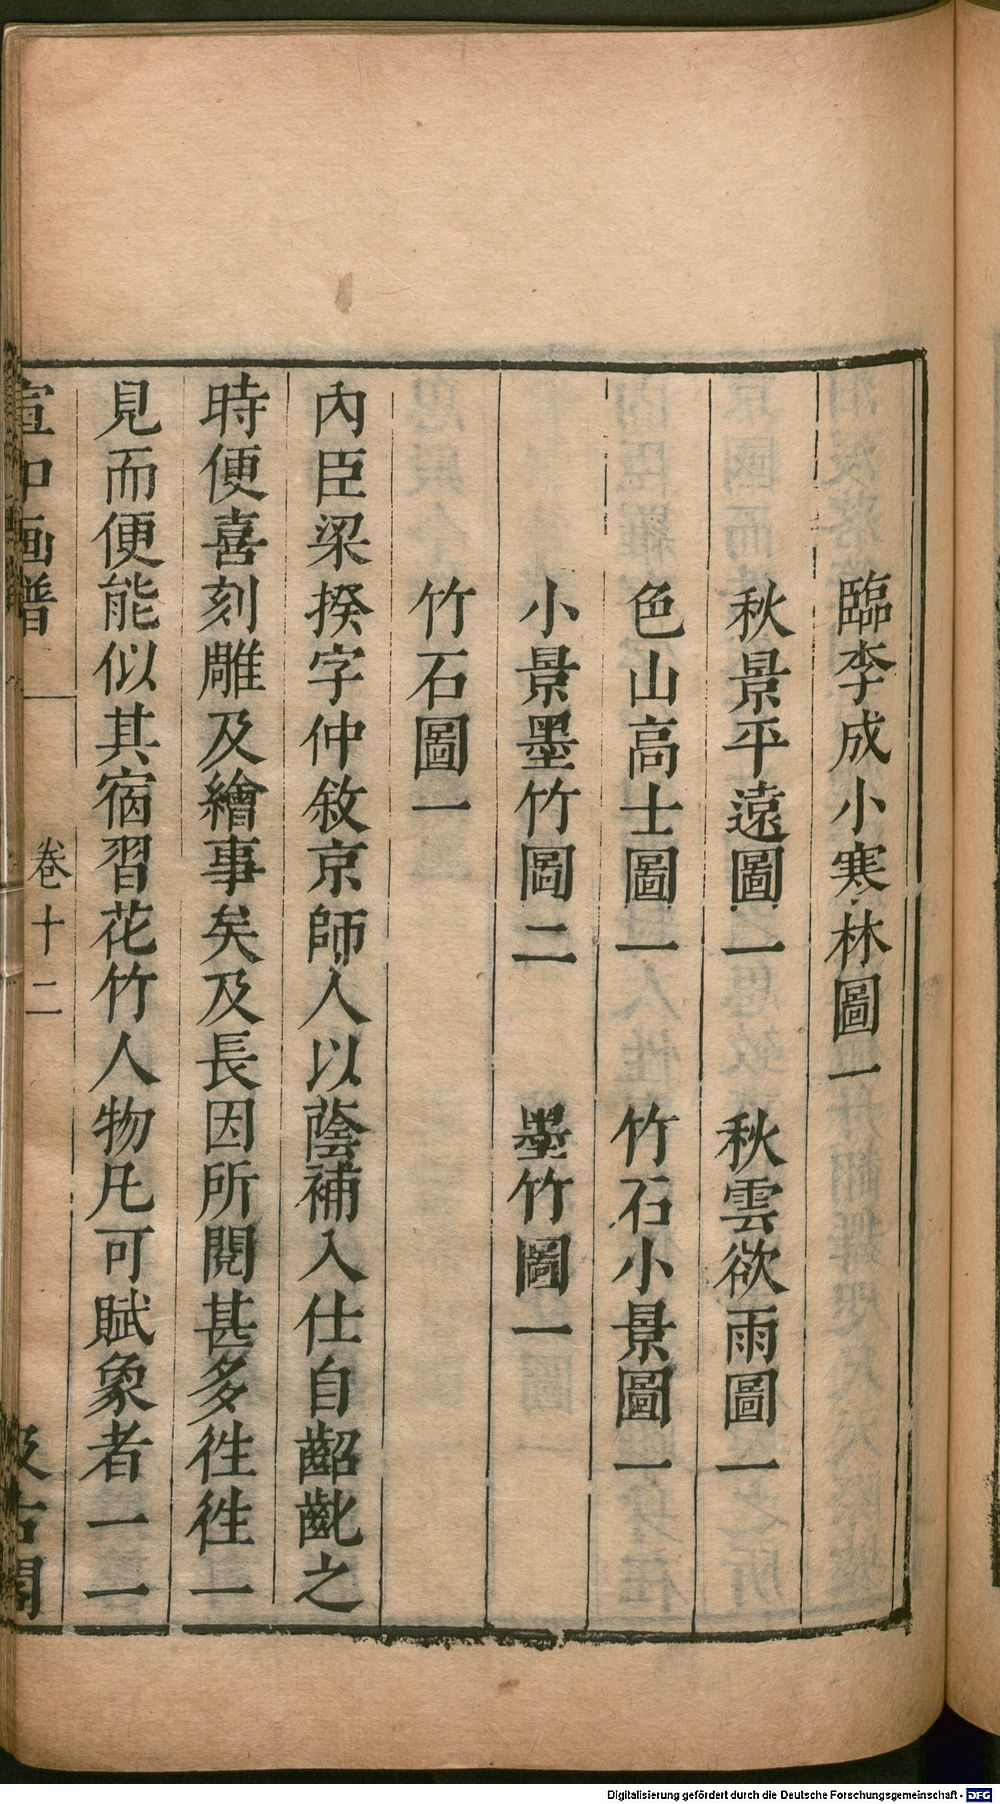 臨李成小寒林圖一
秋景平遠圖一　秋雲欲雨圖一
色山高士圖一　竹石小景圖一
小景墨竹圖二　墨竹圖一
竹石圖一
內臣梁揆字仲敘京師人以蔭補入仕自齠齔之
時便喜刻雕及繪事矣及長因所閱甚多徃徃一
見而便能似其宿習花竹人物凡可賦象者一一
宣和画譜
卷十二
汲古閣
Digitalisierung gefördert durch die Deutsche Forschungsgemeinschaft - DFG